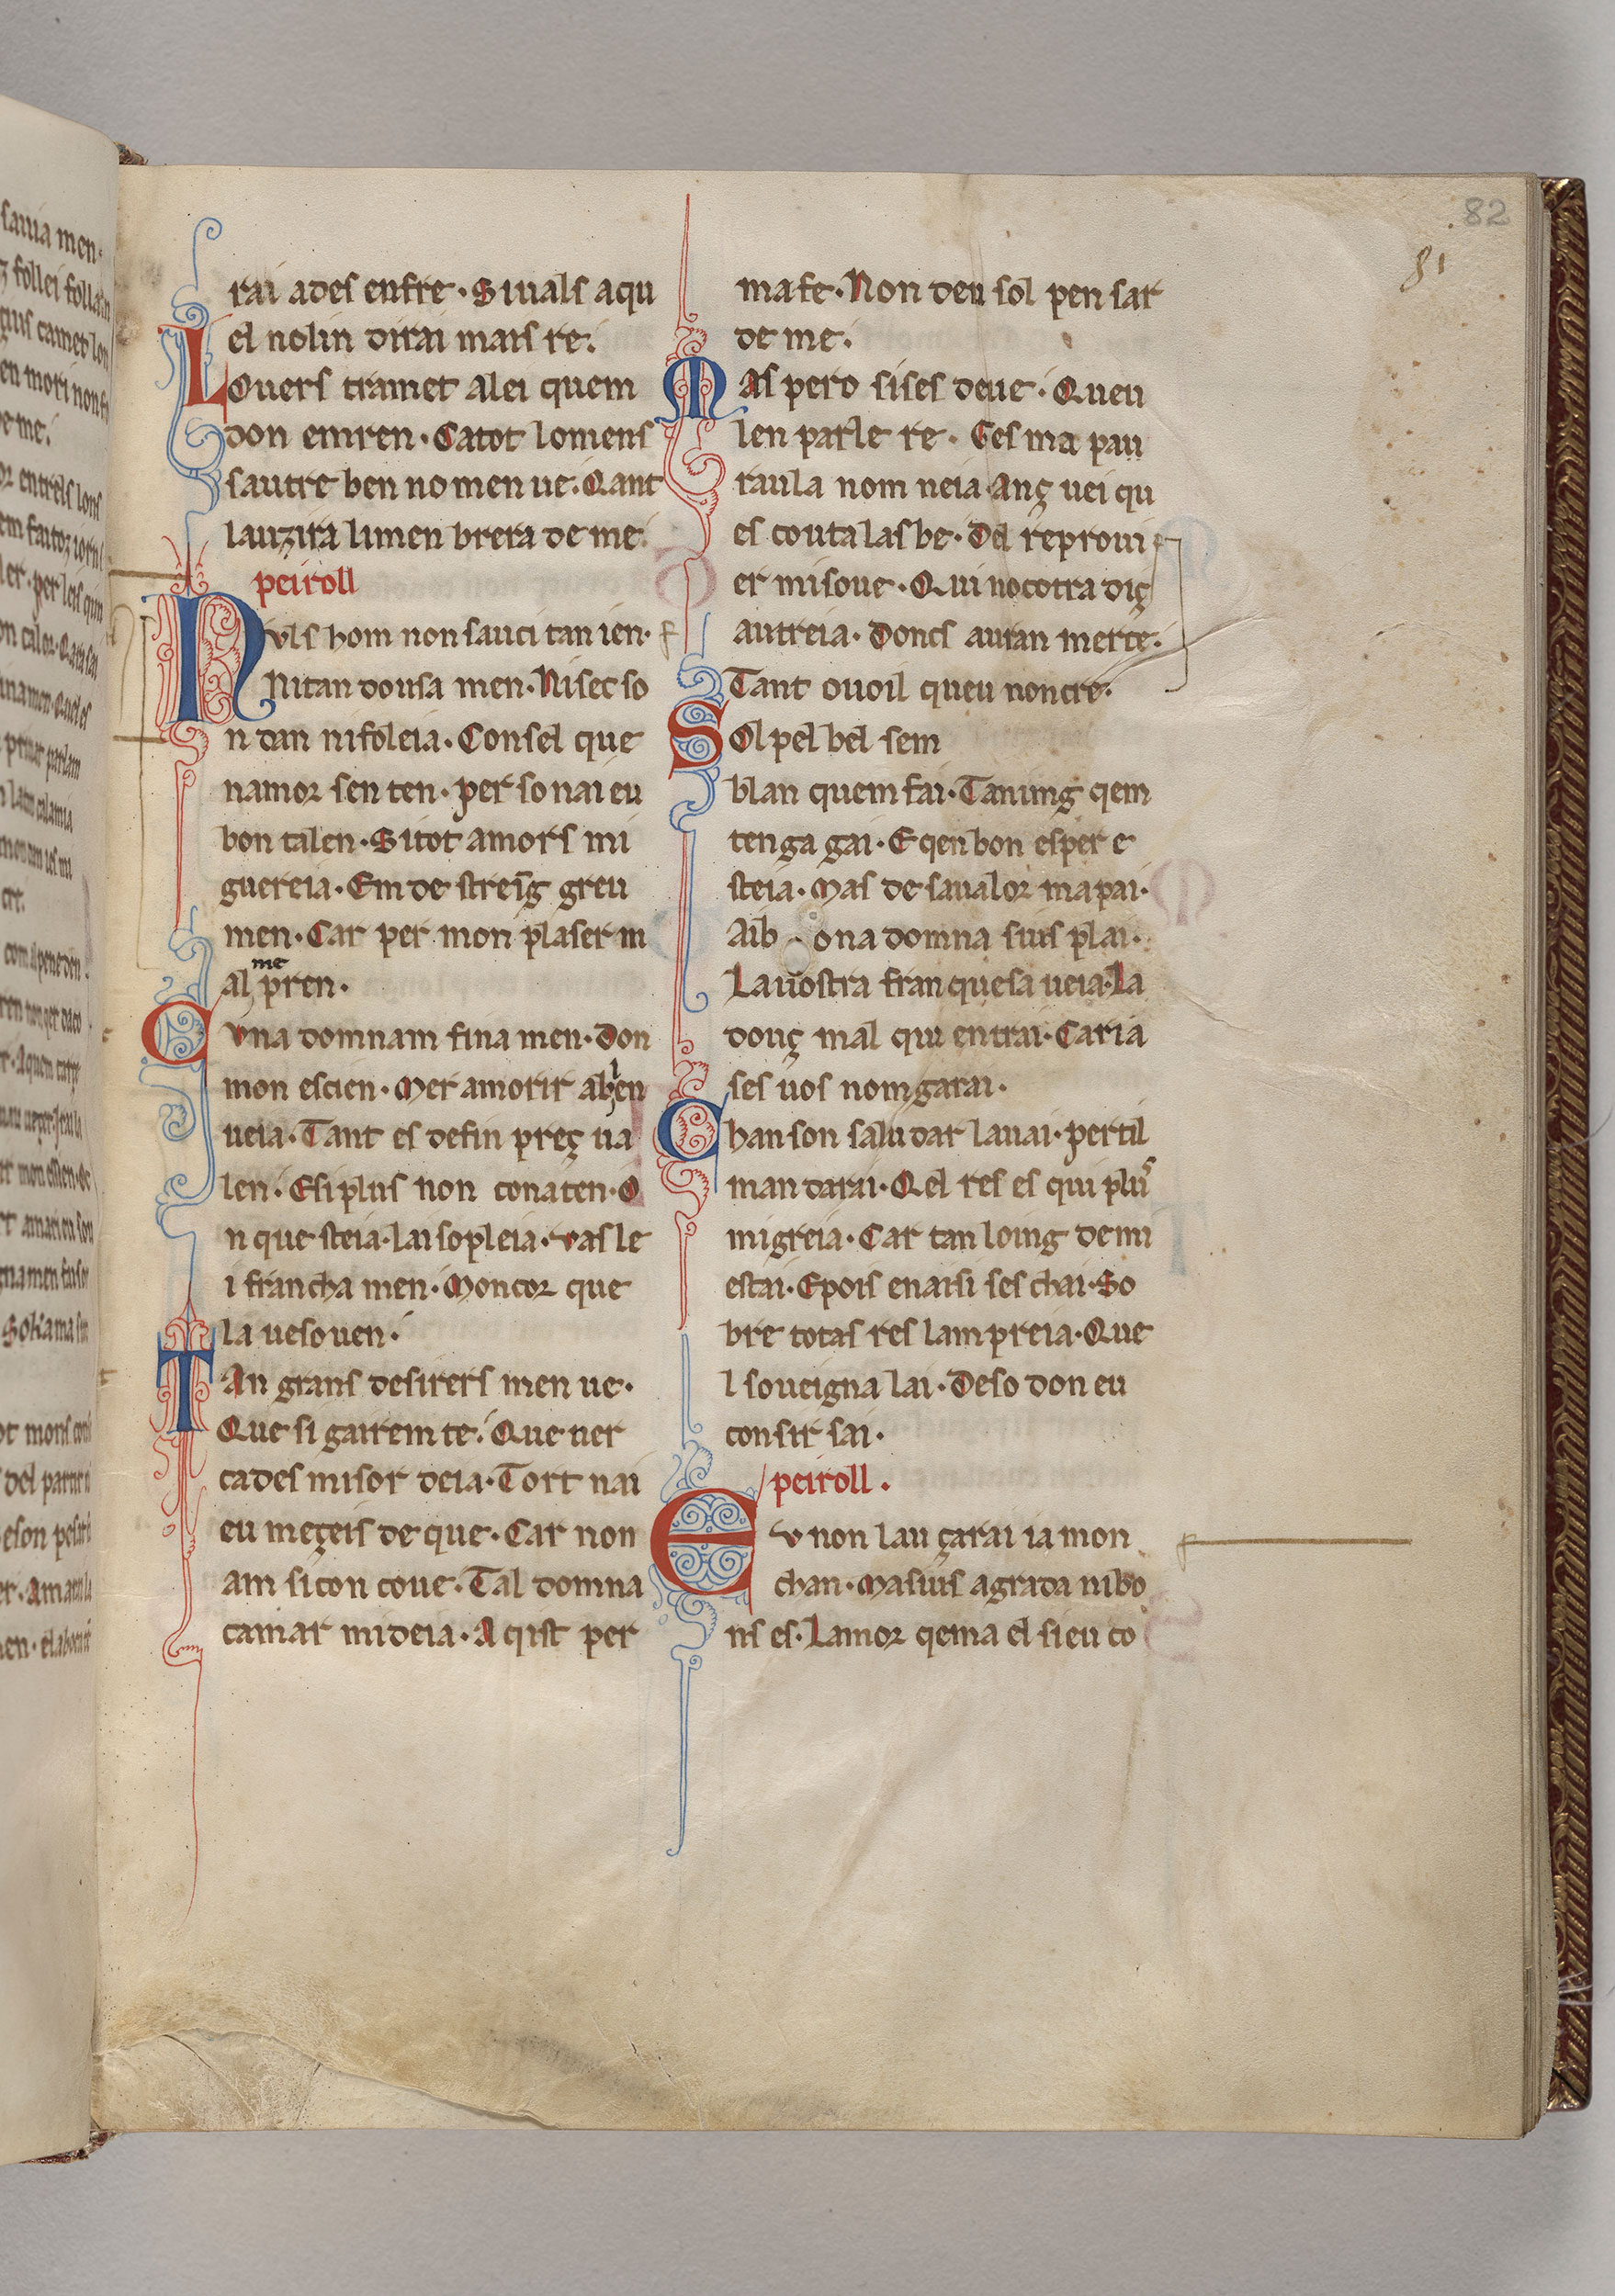 82
81
rai ades enfre · Siuals aqu
el nolin dirai mais re.
Louers tramet alei quem
don emren · Catot lomens
sautre ben no men ue. Qant
lauzira lunen brera de me.
peiroll
Nuls hom non sauci tan ien ·
Nitan dousa men · Nisec so
n dan nifoleia · Consel que
namor sen ten · per so nai eu
bon talen · Sitot amors mi
guereia · Em de streing greu
men · Car per mon plaser m
me
alz pren ·
Cuna domnam fina men · Don
mon escien · Mer amorir abzen
ueia · Tant es defin preç ua
len · Esiplus non conaten · O
n que steia · lai sopleia · vas le
i francha men · Moncor que
la uesouen ·
Tan grans desirers men ue ·
Que si gairem te. Que ner
cades misor deia · Tort nai
eu meçeis de que · Car non
am sicon coue · Tal domna
camar mideia · A qist per
mafe · Non deu sol pen sar
de me.
Mas pero sises deue · Queu
len parle re · Ges ma pau
raula nom neia · Anç uei qu
es couta las be · Del reproui
er misoue · Qui nocotra diç
autreia · Doncs auran merce ·
Tant ouoil queu noncre ·
Sol pel bel sem
blan quem fai · Tanimg qem
tenga gai · E qen bon esper e
steia · Mas de saualor mapai ·
Aib ona domna suis plai ·
La uostra franquesa ueia · La
douç mal qui entrai · Caria
ses uos nomgarai ·
Chanson saludar lauai · pertil
man darai · Qel res es qui plus
migreia · Car tan loing de mi
estai · Epois enaisi ses chai · So
bre totas res lampreia · Que
l soueigna lai · Deso don eu
consir sai ·
peiroll ·
Eu non lau çarai ia mon
chan · Masuis agrada nibo
ns es · Lamor qema el sieu co